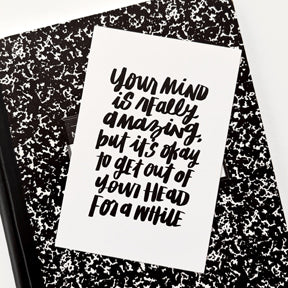 YOUR MIND
is REALLY
amazing,
but it's okay
to get out of
YOUR HEAD
FOR a WHILE